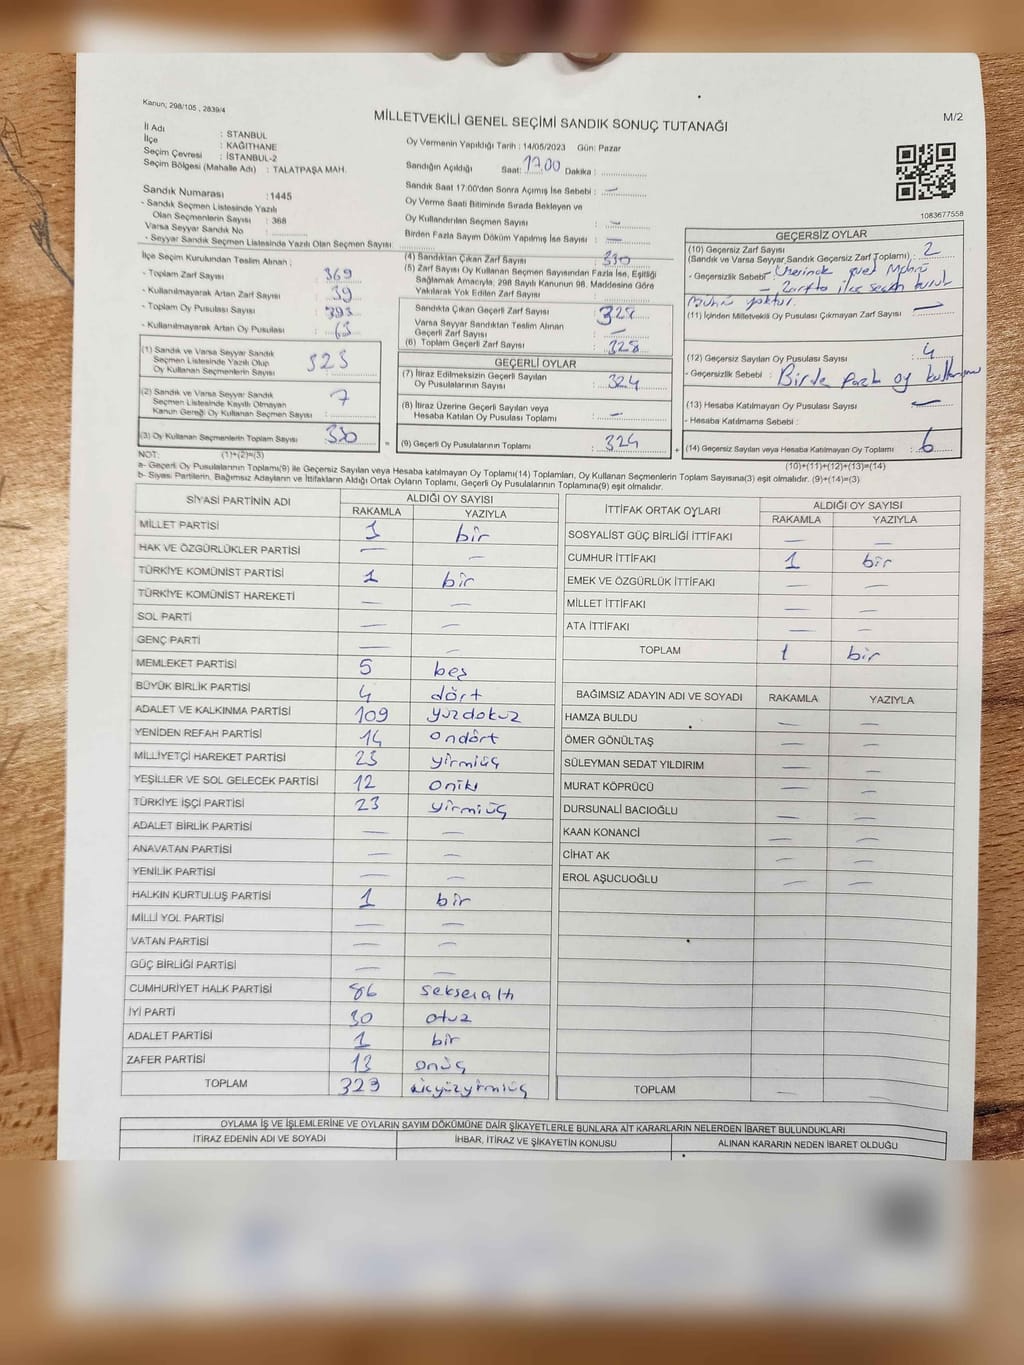 Kanun; 298/105 , 2839/4
MİLLETVEKİLİ GENEL SEÇİMİ SANDIK SONUÇ TUTANAĞI
M/2
İl Adı : STANBUL
İlçe : KAĞITHANE
Seçim Çevresi : İSTANBUL-2
Seçim Bölgesi (Mahalle Adı) : TALATPAŞA MAH.
Sandık Numarası : 1445
- Sandık Seçmen Listesinde Yazılı
Olan Seçmenlerin Sayısı : 368
Varsa Seyyar Sandık No :
- Seyyar Sandık Seçmen Listesinde Yazılı Olan Seçmen Sayısı:
Oy Vermenin Yapıldığı Tarih : 14/05/2023 Gün: Pazar
Sandığın Açıldığı Saat: 17.00 Dakika :
Sandık Saat 17:00'den Sonra Açımış İse Sebebi : —
Oy Verme Saati Bitiminde Sırada Bekleyen ve
Oy Kullandırılan Seçmen Sayısı : —
Birden Fazla Sayım Döküm Yapılmış İse Sayısı : —
1083677558
İlçe Seçim Kurulundan Teslim Alınan ;
- Toplam Zarf Sayısı : 369
- Kullanılmayarak Artan Zarf Sayısı : 39
- Toplam Oy Pusulası Sayısı : 393
- Kullanılmayarak Artan Oy Pusulası : 63
(1) Sandık ve Varsa Seyyar Sandık
Seçmen Listesinde Yazılı Olup
Oy Kullanan Seçmenlerin Sayısı : 323
(2) Sandık ve Varsa Seyyar Sandık
Seçmen Listesinde Kayıtlı Olmayan
Kanun Gereği Oy Kullanan Seçmen Sayısı : 7
(3) Oy Kullanan Seçmenlerin Toplam Sayısı : 330 =
(4) Sandıktan Çıkan Zarf Sayısı : 330
(5) Zarf Sayısı Oy Kullanan Seçmen Sayısından Fazla İse, Eşitliği
Sağlamak Amacıyla; 298 Sayılı Kanunun 98. Maddesine Göre
Yakılarak Yok Edilen Zarf Sayısı :
Sandıkta Çıkan Geçerli Zarf Sayısı : 328
Varsa Seyyar Sandıktan Teslim Alınan
Geçerli Zarf Sayısı : —
(6) Toplam Geçerli Zarf Sayısı : 328
GEÇERLİ OYLAR
(7) İtiraz Edilmeksizin Geçerli Sayılan
Oy Pusulalarının Sayısı : 324
(8) İtiraz Üzerine Geçerli Sayılan veya
Hesaba Katılan Oy Pusulası Toplamı : —
(9) Geçerli Oy Pusulalarının Toplamı : 324 +
GEÇERSİZ OYLAR
(10) Geçersiz Zarf Sayısı
(Sandık ve Varsa Seyyar Sandık Geçersiz Zarf Toplamı) : 2
- Geçersizlik Sebebi : Üzerinde
- Zarfta ilçe seçim kurul
mührü yoktur.
(11) İçinden Milletvekili Oy Pusulası Çıkmayan Zarf Sayısı : —
(12) Geçersiz Sayılan Oy Pusulası Sayısı : 4
- Geçersizlik Sebebi : Birden fazla oy
(13) Hesaba Katılmayan Oy Pusulası Sayısı : —
- Hesaba Katılmama Sebebi :
(14) Geçersiz Sayılan veya Hesaba Katılmayan Oy Toplamı : 6
NOT: (1)+(2)=(3)
(10)+(11)+(12)+(13)=(14)
a- Geçerli Oy Pusulalarının Toplamı(9) ile Geçersiz Sayılan veya Hesaba katılmayan Oy Toplamı(14) Toplamları, Oy Kullanan Seçmenlerin Toplam Sayısına(3) eşit olmalıdır. (9)+(14)=(3)
b- Siyasi Partilerin, Bağımsız Adayların ve İttifakların Aldığı Ortak Oyların Toplamı, Geçerli Oy Pusulalarının Toplamına(9) eşit olmalıdır.
SİYASİ PARTİNİN ADI ALDIĞI OY SAYISI
RAKAMLA YAZIYLA
MİLLET PARTİSİ 1 bir
HAK VE ÖZGÜRLÜKLER PARTİSİ — —
TÜRKİYE KOMÜNİST PARTİSİ 1 bir
TÜRKİYE KOMÜNİST HAREKETİ — —
SOL PARTİ — —
GENÇ PARTİ — —
MEMLEKET PARTİSİ 5 beş
BÜYÜK BİRLİK PARTİSİ 4 dört
ADALET VE KALKINMA PARTİSİ 109 yüzdokuz
YENİDEN REFAH PARTİSİ 14 ondört
MİLLİYETÇİ HAREKET PARTİSİ 23 yirmiüç
YEŞİLLER VE SOL GELECEK PARTİSİ 12 oniki
TÜRKİYE İŞÇİ PARTİSİ 23 yirmiüç
ADALET BİRLİK PARTİSİ — —
ANAVATAN PARTİSİ — —
YENİLİK PARTİSİ — —
HALKIN KURTULUŞ PARTİSİ 1 bir
MİLLİ YOL PARTİSİ — —
VATAN PARTİSİ — —
GÜÇ BİRLİĞİ PARTİSİ — —
CUMHURİYET HALK PARTİSİ 86 seksenaltı
İYİ PARTİ 30 otuz
ADALET PARTİSİ 1 bir
ZAFER PARTİSİ 13 onüç
TOPLAM 323 üçyüzyirmiüç
İTTİFAK ORTAK OYLARI ALDIĞI OY SAYISI
RAKAMLA YAZIYLA
SOSYALİST GÜÇ BİRLİĞİ İTTİFAKI — —
CUMHUR İTTİFAKI 1 bir
EMEK VE ÖZGÜRLÜK İTTİFAKI — —
MİLLET İTTİFAKI — —
ATA İTTİFAKI — —
TOPLAM 1 bir
BAĞIMSIZ ADAYIN ADI VE SOYADI RAKAMLA YAZIYLA
HAMZA BULDU — —
ÖMER GÖNÜLTAŞ — —
SÜLEYMAN SEDAT YILDIRIM — —
MURAT KÖPRÜCÜ — —
DURSUNALİ BACIOĞLU — —
KAAN KONANCİ — —
CİHAT AK — —
EROL AŞUCUOĞLU — —
TOPLAM — —
OYLAMA İŞ VE İŞLEMLERİNE VE OYLARIN SAYIM DÖKÜMÜNE DAİR ŞİKAYETLERLE BUNLARA AİT KARARLARIN NELERDEN İBARET BULUNDUKLARI
İTİRAZ EDENİN ADI VE SOYADI İHBAR, İTİRAZ VE ŞİKAYETİN KONUSU ALINAN KARARIN NEDEN İBARET OLDUĞU